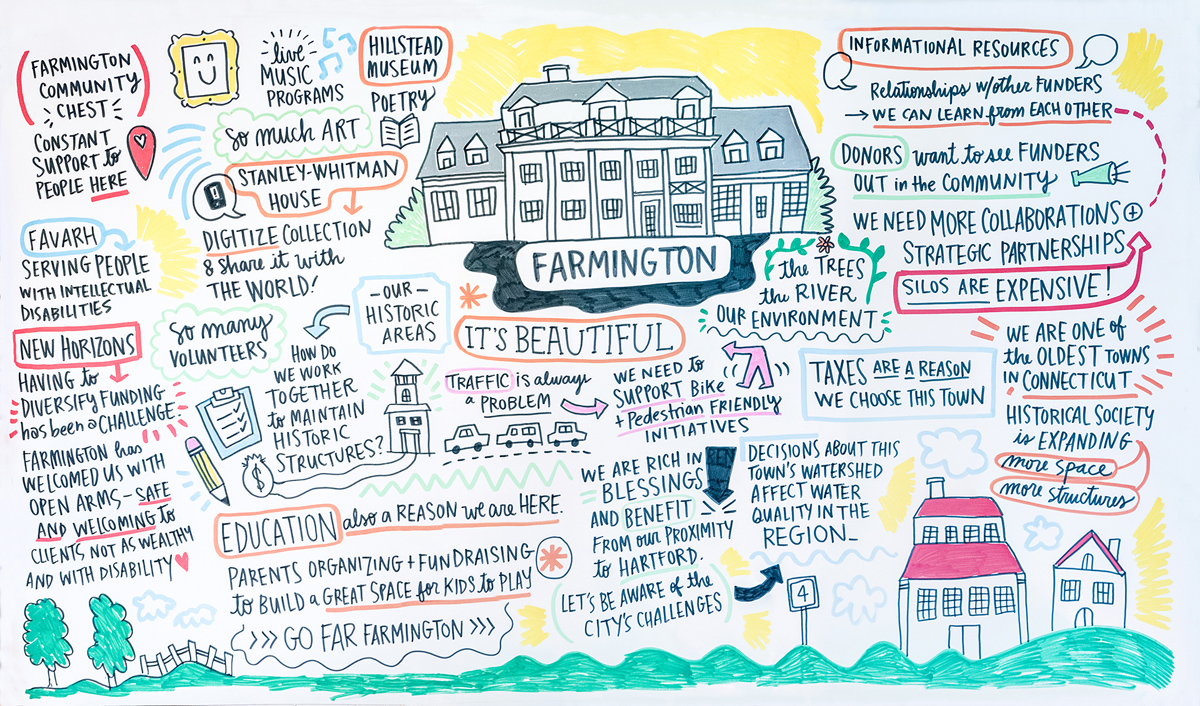 FARMINGTON
COMMUNITY
CHEST
CONSTANT
SUPPORT to
PEOPLE HERE
live
MUSIC
PROGRAMS
HILLSTEAD
MUSEUM
POETRY
SO MUCH ART
STANLEY-WHITMAN
HOUSE
DIGITIZE COLLECTION
& share it with
THE WORLD!
FAVARH
SERVING PEOPLE
WITH INTELLECTUAL
DISABILITIES
NEW HORIZONS
HAVING to
DIVERSIFY FUNDING
has been a CHALLENGE.
FARMINGTON has
WELCOMED US WITH
OPEN ARMS - SAFE
AND WELCOMING to
CLIENTS NOT AS WEALTHY
AND WITH DISABILITY
SO MANY
VOLUNTEERS
-OUR-
HISTORIC
AREAS
HOW DO
WE WORK
TOGETHER
to MAINTAIN
HISTORIC
STRUCTURES?
$
FARMINGTON
IT'S BEAUTIFUL
the TREES
the RIVER
OUR ENVIRONMENT
TRAFFIC is always
a PROBLEM
WE NEED to
SUPPORT Bike
+ Pedestrian FRIENDLY
INITIATIVES
EDUCATION also a REASON we are HERE.
PARENTS ORGANIZING + FUNDRAISING
to BUILD a GREAT SPACE for KIDS to PLAY
>>> GO FAR FARMINGTON >>>
WE ARE RICH IN
BLESSINGS
AND BENEFIT
FROM our PROXIMITY
to HARTFORD.
LET'S BE AWARE of the
CITY'S CHALLENGES
INFORMATIONAL RESOURCES
Relationships w/other FUNDERS
→ WE CAN LEARN from EACH OTHER
DONORS want to see FUNDERS
OUT in the COMMUNITY
WE NEED MORE COLLABORATIONS +
STRATEGIC PARTNERSHIPS
SILOS ARE EXPENSIVE!
TAXES ARE A REASON
WE CHOOSE THIS TOWN
WE ARE ONE of
the OLDEST TOWNS
IN CONNECTICUT
HISTORICAL SOCIETY
is EXPANDING
more space
more structures
DECISIONS ABOUT THIS
TOWN'S WATERSHED
AFFECT WATER
QUALITY IN THE
REGION_
4